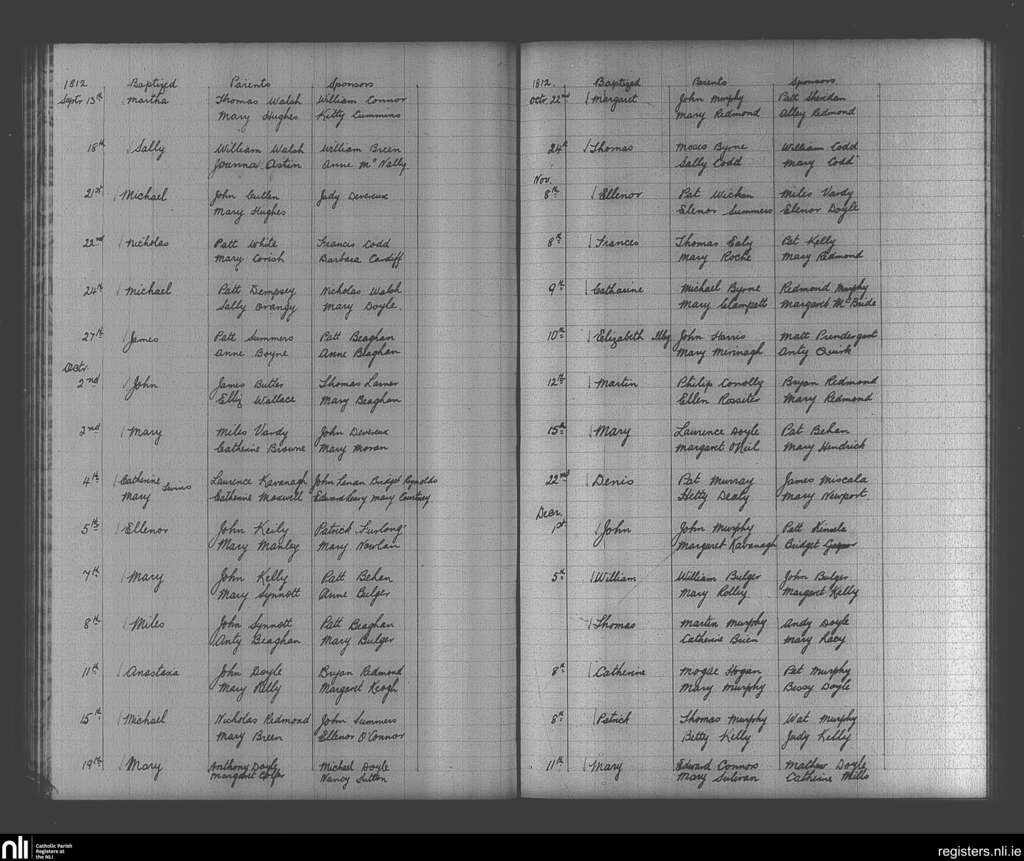 1812 Baptized Parents Sponsors
Septr 13th Martha Thomas Walsh William Connor
Mary Hughes Kitty Cummins
18th Sally William Walsh William Breen
Joanna Astin Anne McNally
21st Michael John Cullen Judy Devereux
Mary Hughes
22nd Nicholas Patt White Francis Codd
Mary Corish Barbara Cardiff
24th Michael Patt Dempsey Nicholas Walsh
Sally Orangy Mary Doyle
27th James Patt Summers Patt Beaghan
Anne Boyne Anne Beaghan
Octr
2nd John James Butler Thomas Larner
Eliz Wallace Mary Beaghan
2nd Mary Miles Vardy John Devereux
Catherine Browne Mary Moran
4th Catherine Laurence Kavanagh John Lenan Bridget Reynolds
Mary Twins Catherine Maxwell Edward Leary Mary Courtney
5th Ellenor John Keily Patrick Furlong
Mary Manley Mary Nowlan
7th Mary John Kelly Patt Behan
Mary Synnott Anne Bulger
8th Miles John Synnott Patt Beaghan
Anty Beaghan Mary Bulger
11th Anastasia John Doyle Bryan Redmond
Mary Kelly Margaret Keogh
15th Michael Nicholas Redmond John Summers
Mary Breen Ellenor O'Connor
19th Mary Anthony Doyle Michael Doyle
Margaret Colfer Nancy Sutton
1812 Baptized Parents Sponsors
Octr. 22nd Margaret John Murphy Patt Sheridan
Mary Redmond Alley Redmond
24th Thomas Moses Byrne William Codd
Sally Codd Mary Codd
Nov.
8th Ellenor Pat Wickan Miles Vardy
Elenor Summers Elenor Doyle
8th Frances Thomas Ealy Pat Kelly
Mary Roche Mary Redmond
9th Catharine Michael Byrne Redmond Murphy
Mary Clampett Margaret McBride
10th Elizabeth Illeg John Harris Matt Prendergast
Mary Mernagh Anty Quirk
12th Martin Philip Conolly Bryan Redmond
Ellen Rossiter Mary Redmond
15th Mary Laurence Doyle Pat Behan
Margaret O'Neil Mary Hendrick
22nd Denis Pat Murray James Miscala
Hetty Dealy Mary Newport
Decr.
1st John John Murphy Patt Kinsela
Margaret Kavanagh Bridget
5th William William Bulger John Bulger
Mary Kelly Margaret Kelly
8th Thomas Martin Murphy Andy Doyle
Catherine Brien Mary Kacy
8th Catherine Mogue Hogan Pat Murphy
Mary Murphy Bessy Doyle
8th Patrick Thomas Murphy Wat Murphy
Betty Kelly Judy Kelly
11th Mary Edward Connors Mathew Doyle
Mary Sulivan Catherine Mills
nli Catholic Parish
Registers at
the NLI
registers.nli.ie